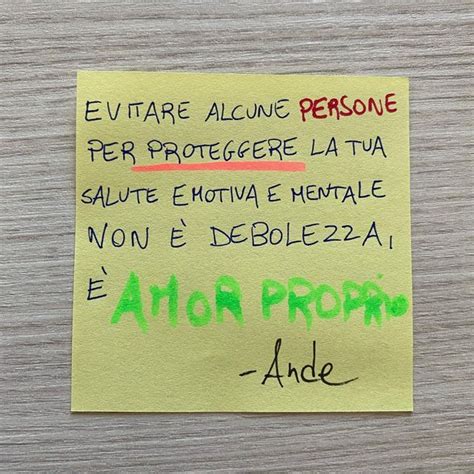 EVITARE ALCUNE PERSONE
PER PROTEGGERE LA TUA
SALUTE EMOTIVA E MENTALE
NON È DEBOLEZZA,
È AMOR PROPRIO
-Ande